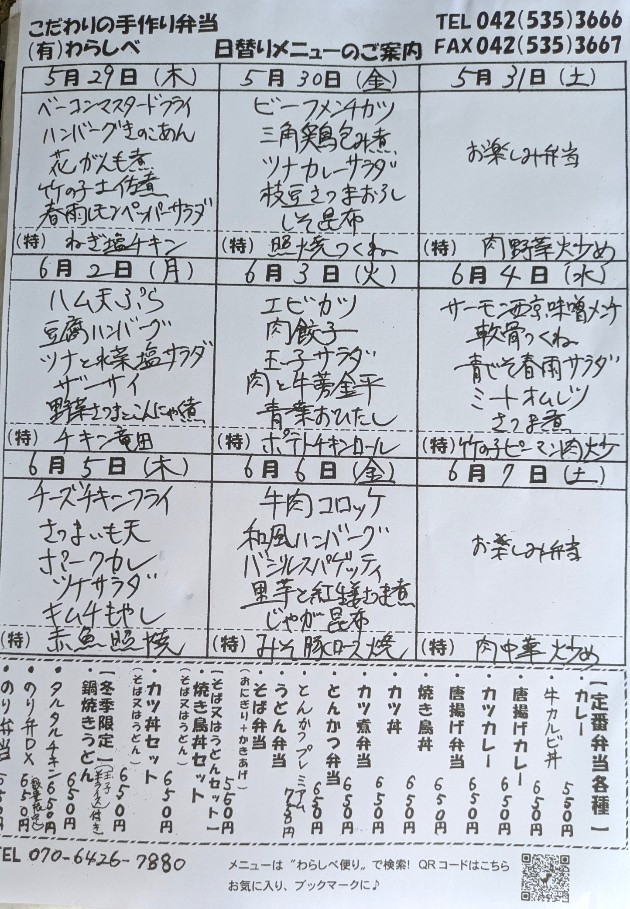 こだわりの手作り弁当
TEL 042(535)3666
(有)わらしべ
日替りメニューのご案内
FAX 042(535)3667
5月29日(木)
ベーコンマスタードフライ
ハンバーグきのこあん
花がんも煮
竹の子土佐煮
春雨レモンペーパーサラダ
(特) ねぎ塩チキン
5月30日(金)
ビーフメンチカツ
三角鶏包み煮
ツナカレーサラダ
枝豆さつまおろし
しそ昆布
(特) 照焼つくね
5月31日(土)
お楽しみ弁当
(特) 肉野菜炒め
6月2日(月)
ハム天ぷら
豆腐ハンバーグ
ツナと水菜塩サラダ
ザーサイ
野菜さつまとこんにゃく煮
(特) チキン竜田
6月3日(火)
エビカツ
肉餃子
玉子サラダ
肉と牛蒡金平
青菜おひたし
(特) ポテトチキンロール
6月4日(水)
サーモン西京味噌メンチ
軟骨つくね
青じそ春雨サラダ
ミートオムレツ
さつま煮
(特) 竹の子ピーマン肉炒
6月5日(木)
チーズチキンフライ
さつまいも天
ポークカレー
ツナサラダ
キムチもやし
(特) 赤魚照焼
6月6日(金)
牛肉コロッケ
和風ハンバーグ
バジルスパゲッティ
里芋と紅生姜むき煮
じゃが昆布
(特) みそ豚ロース焼
6月7日(土)
お楽しみ弁当
(特) 肉中華炒め
【定番弁当各種】
・カレー 550円
・牛カルビ丼 650円
・唐揚げカレー 650円
・カツカレー 650円
・唐揚げ弁当 650円
・焼き鳥丼 650円
・カツ丼 650円
・カツ煮弁当 650円
・とんかつ弁当 650円
・とんかつプレミアム 758円
・うどん弁当
・そば弁当
(おにぎり+かきあげ) 550円
【そば又はうどんセット】
・焼き鳥丼セット
(そば又はうどん) 650円
・カツ丼セット
(そば又はうどん) 650円
【冬季限定】
・鍋焼きうどん
付き) 650円
・タルタルチキン 650円
・のり弁DX 650円
・のり弁当
TEL 070-6426-7880
メニューは“わらしべ便り”で検索! QRコードはこちら
お気に入り、ブックマークに♪